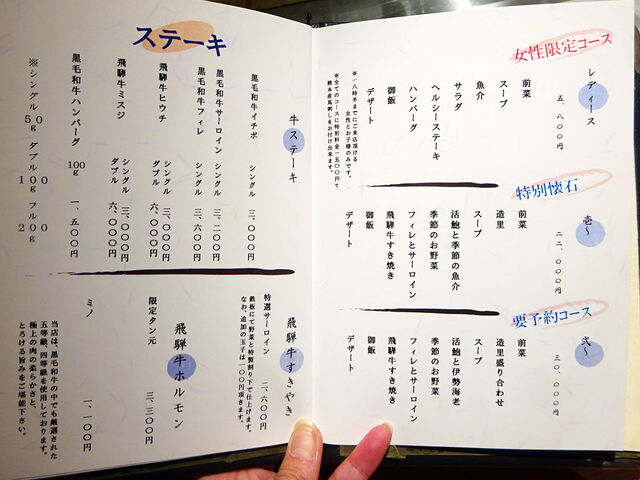 女性限定コース
レディース
五、八〇〇円
前菜
スープ
魚介
サラダ
ヘルシーステーキ
ハンバーグ
御飯
デザート
※一八時半までにご来店頂ける
女性とお子様のみです。
※全てのコースに特別料金一五〇〇円で
熊本産馬刺しをお付け出来ます。
特別懐石
壱〜
二二、〇〇〇円
前菜
造里
スープ
活鮑と季節の魚介
季節のお野菜
フィレとサーロイン
飛騨牛すき焼き
御飯
デザート
要予約コース
弐〜
三〇、〇〇〇円
前菜
造里盛り合わせ
スープ
活鮑と伊勢海老
季節のお野菜
フィレとサーロイン
飛騨牛すき焼き
御飯
デザート
ステーキ
牛ステーキ
黒毛和牛イチボ シングル 三、〇〇〇円
黒毛和牛サーロイン シングル 三、二〇〇円
黒毛和牛フィレ シングル 三、六〇〇円
飛騨牛ヒウチ シングル 三、〇〇〇円
ダブル 六、〇〇〇円
飛騨牛ミスジ シングル 三、〇〇〇円
ダブル 六、〇〇〇円
黒毛和牛ハンバーグ 100g 一、五〇〇円
※シングル50g ダブル100g フル200g
飛騨牛すきやき
特選サーロイン 二、六〇〇円
鉄板にて野菜と特製割り下で仕上げます。
なお、追加の玉子は一〇〇円頂きます。
飛騨牛ホルモン
限定タン元 三、三〇〇円
ミノ 一、一〇〇円
当店は、黒毛和牛の中でも厳選された
五等級、四等級を使用しております。
極上の肉の柔らかさと、
とろける旨みをご堪能下さい。